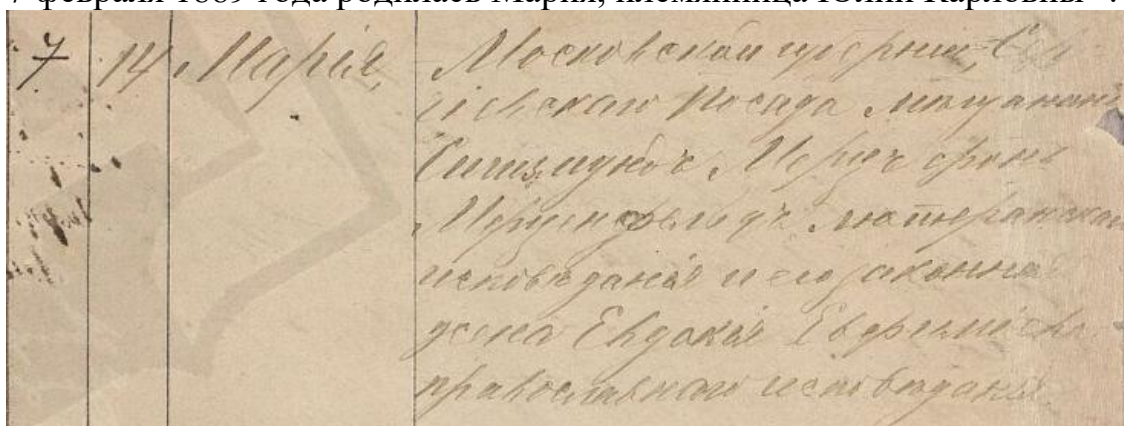 7 февраля 1889 года родилась Мария, племянница Юлии Карловны
7 14 Марія, Московской губерніи, Сер-
гіевскаго Посада мѣщанинъ
Сигизмундъ Мерцъ фонъ
Мерценфельдъ лютеранскаго
исповѣданія и его законная
жена Евдокія Евфиміева
православнаго исповѣданія